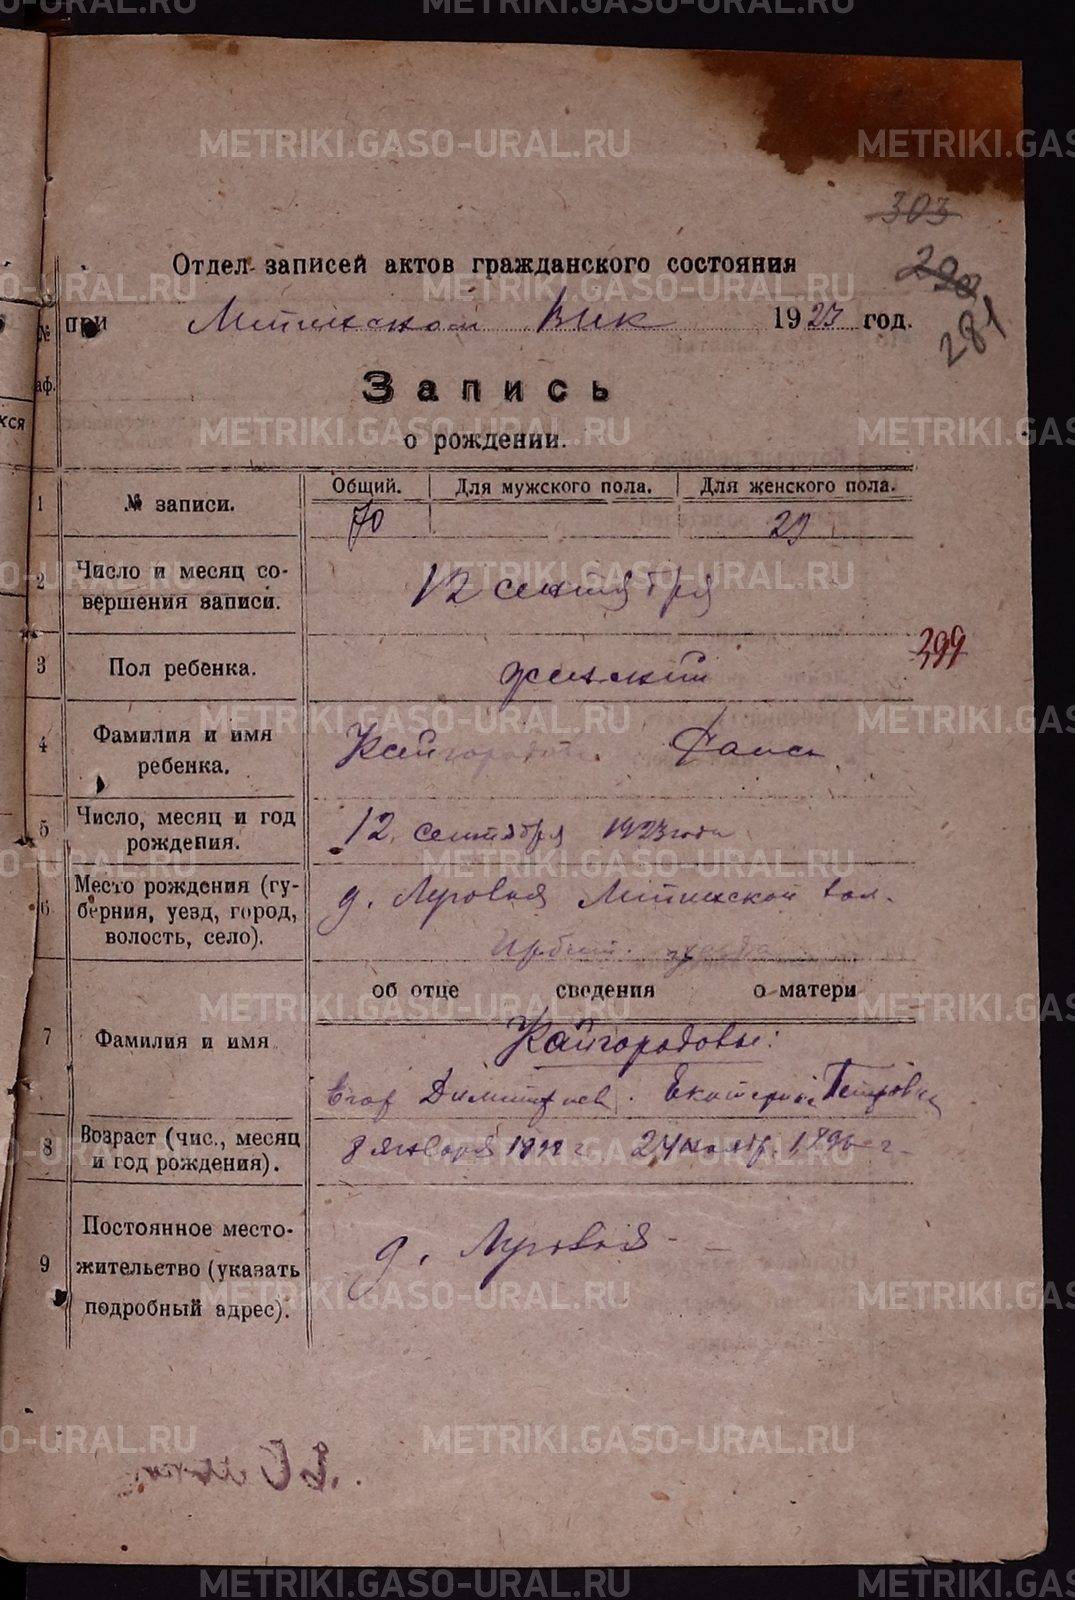 303
290
281
Отдел записей актов гражданского состояния
при Митинском Вик 1923 год.
Запись
о рождении.
Общий. Для мужского пола. Для женского пола.
1 № записи. 70 29
2 Число и месяц со-
вершения записи. 12 сентября
399
3 Пол ребенка. женский
4 Фамилия и имя
ребенка. Кайгородова
5 Число, месяц и год
рождения. 12 сентября 1923 года
6 Место рождения (гу-
берния, уезд, город,
волость, село). д. Луговая Митинской вол.
Ирбит. уезда
об отце сведения о матери
7 Фамилия и имя Кайгородовы:
Егор Димитриев. Екатерина Петровна
8 Возраст (чис., месяц
и год рождения). 8 января 24 ноябр.
9 Постоянное место-
жительство (указать
подробный адрес). д. Луговая
№
аф.
хся
METRIKI.GASO-URAL.RU